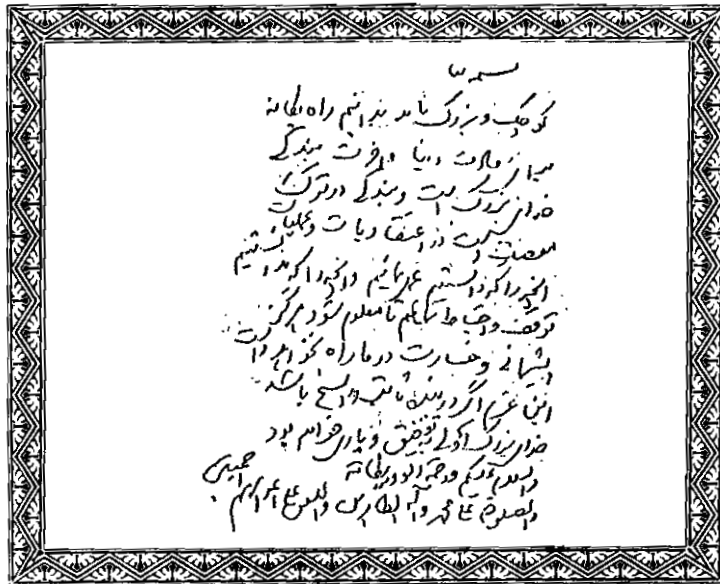 بسمه تعالی
کوچک و بزرگ باید بدانیم راه یگانه
برای سعادت دنیا و آخرت بندگی
خدای بزرگ است و بندگی در ترک
معصیت است در اعتقادیات و عملیات
آنچه را که دانستیم عمل نمائیم و آنچه را که ندانستیم
توقف و احتیاط نمائیم تا معلوم شود هرگز
پشیمانی و خسارت در ما راه نخواهد داشت
این عزم اگر در بنده ثابت و راسخ باشد
خدای بزرگ اولی به توفیق و یاری خواهد بود
والسلام علیکم و رحمة الله و برکاته
والصلوة علی محمد و آله الطاهرین واللعن علی اعدائهم اجمعین